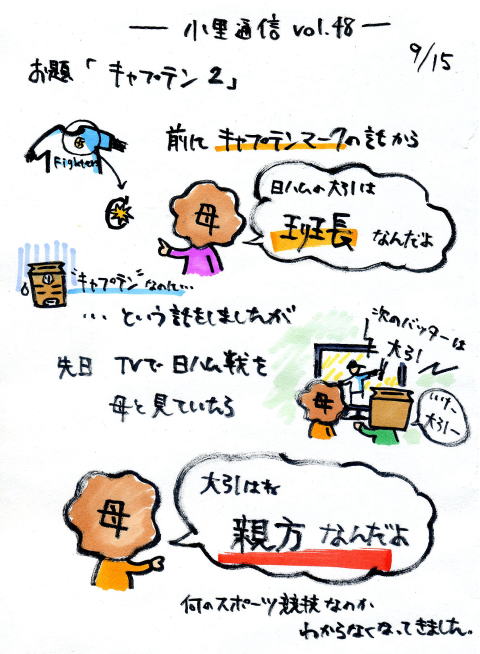 小里通信 vol.48
9/15
お題「キャプテン2」
Fighters
前にキャプテンマークの話から
母
日ハムの大引は
班長 なんだよ
"キャプテン"なのに…
… という話をしましたが
先日 TVで日ハム戦を
母と見ていたら
次のバッターは
大引
母
いけー
大引ー
母
大引はね
親方なんだよ
何のスポーツ競技なのか
わからなくなってきました。